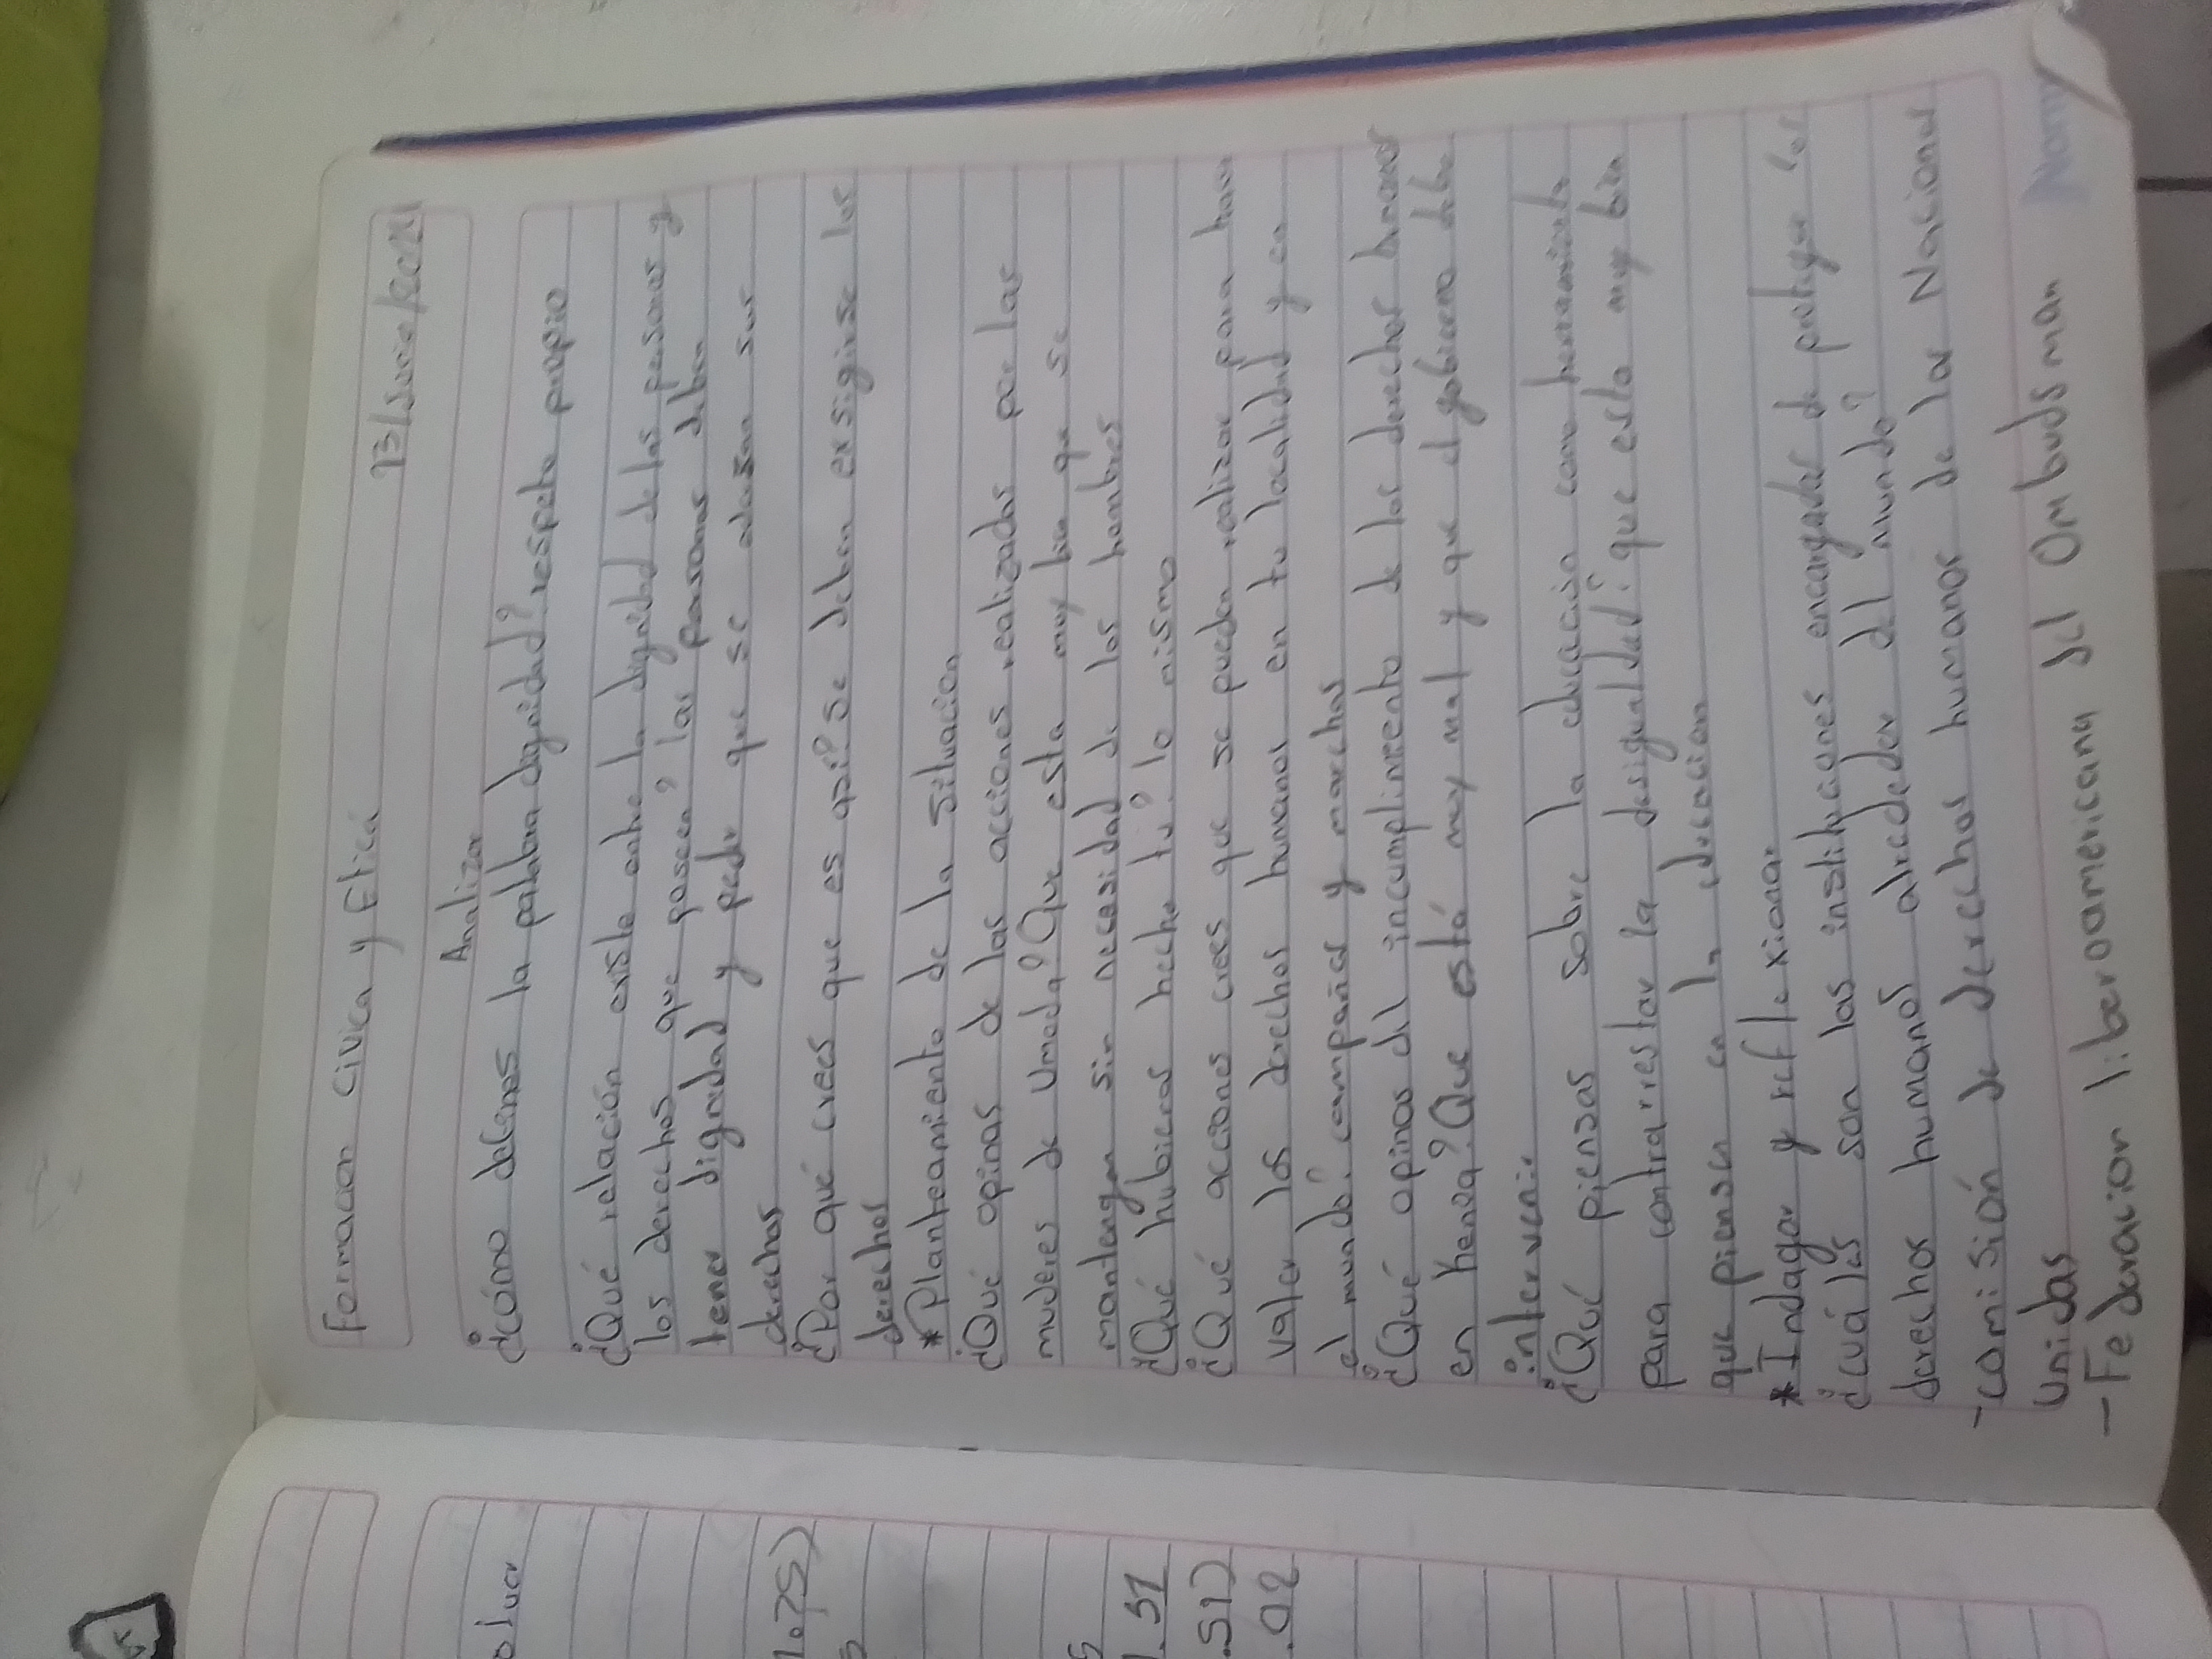 Formacion Civica y Etica
13/Junio/2021
Analizar
¿cómo defines la palabra dignidad? respeto propio
¿Qué relación existe entre la dignidad de las personas y
los derechos que poseen? las personas deben
tener dignidad y pedir que se adesan sus
derechos
¿Por qué crees que es asi? Se deben exsigirse los
derechos
*Planteamiento de la situacion
¿Qué opinas de las acciones realizadas por las
mujeres de Umoda? Que esta muy bien que se
mantengan sin necesidad de los hombres
¿Qué hubieras hecho tu? lo mismo
¿Qué acciones crees que se pueden realizar para hacer
valer los derechos humanos en tu localidad y en
el mundo? campañas y marchas
¿Qué opinas del incumplimiento de los derechos humanos
en Kenia? Que está muy mal y que el gobierno debe
intervenir
¿Qué piensas sobre la educación como herramienta
para contrarrestar la desigualdad? que esta muy bien
que piensen en la educacion
*Indagar y reflexionar
¿cuáles son las instituciones encargadas de protejer los
derechos humanos alrededor del mundo?
-comisión de derechos humanos de las Naciones
Unidas
-Federacion liberoamericana del Ombudsman
Norm
oluer
1.75)
5
5
1.51
.51)
.02